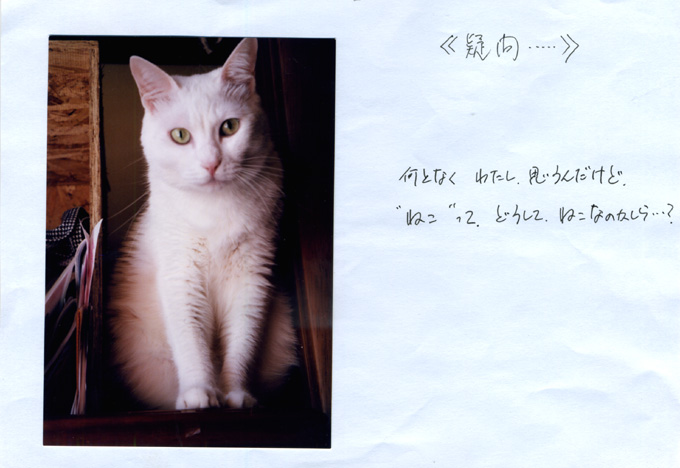 《疑問‥‥‥》
何となく わたし、思うんだけど、
"ねこ"って、どうして、ねこなのかしら…?